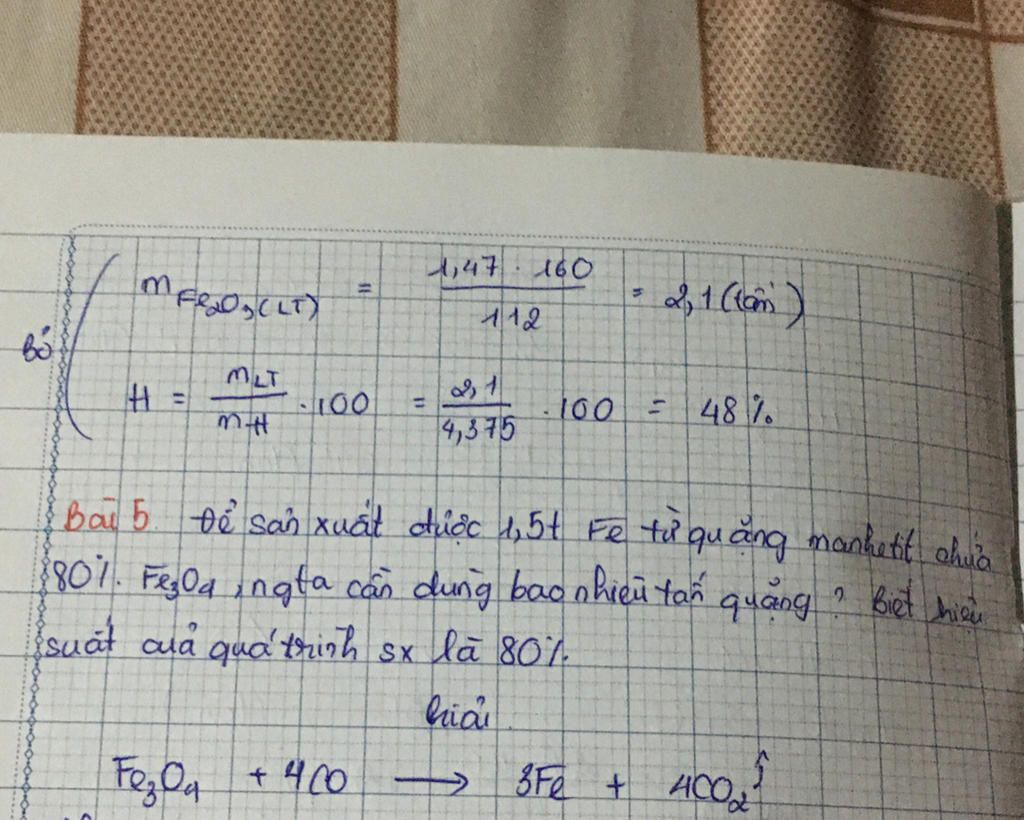 m Fe₂O₃(LT) = 1,47 . 160 / 112 = 2,1 (tấn)
Bỏ
H = mLT / mTT . 100 = 2,1 / 4,375 . 100 = 48%
Bài 5 Để sản xuất được 1,5t Fe từ quặng manhetit chứa
80% Fe₃O₄, ngta cần dùng bao nhiêu tấn quặng? Biết hiệu
suất của quá trình sx là 80%.
Giải
Fe₃O₄ + 4CO → 3Fe + 4CO₂↑